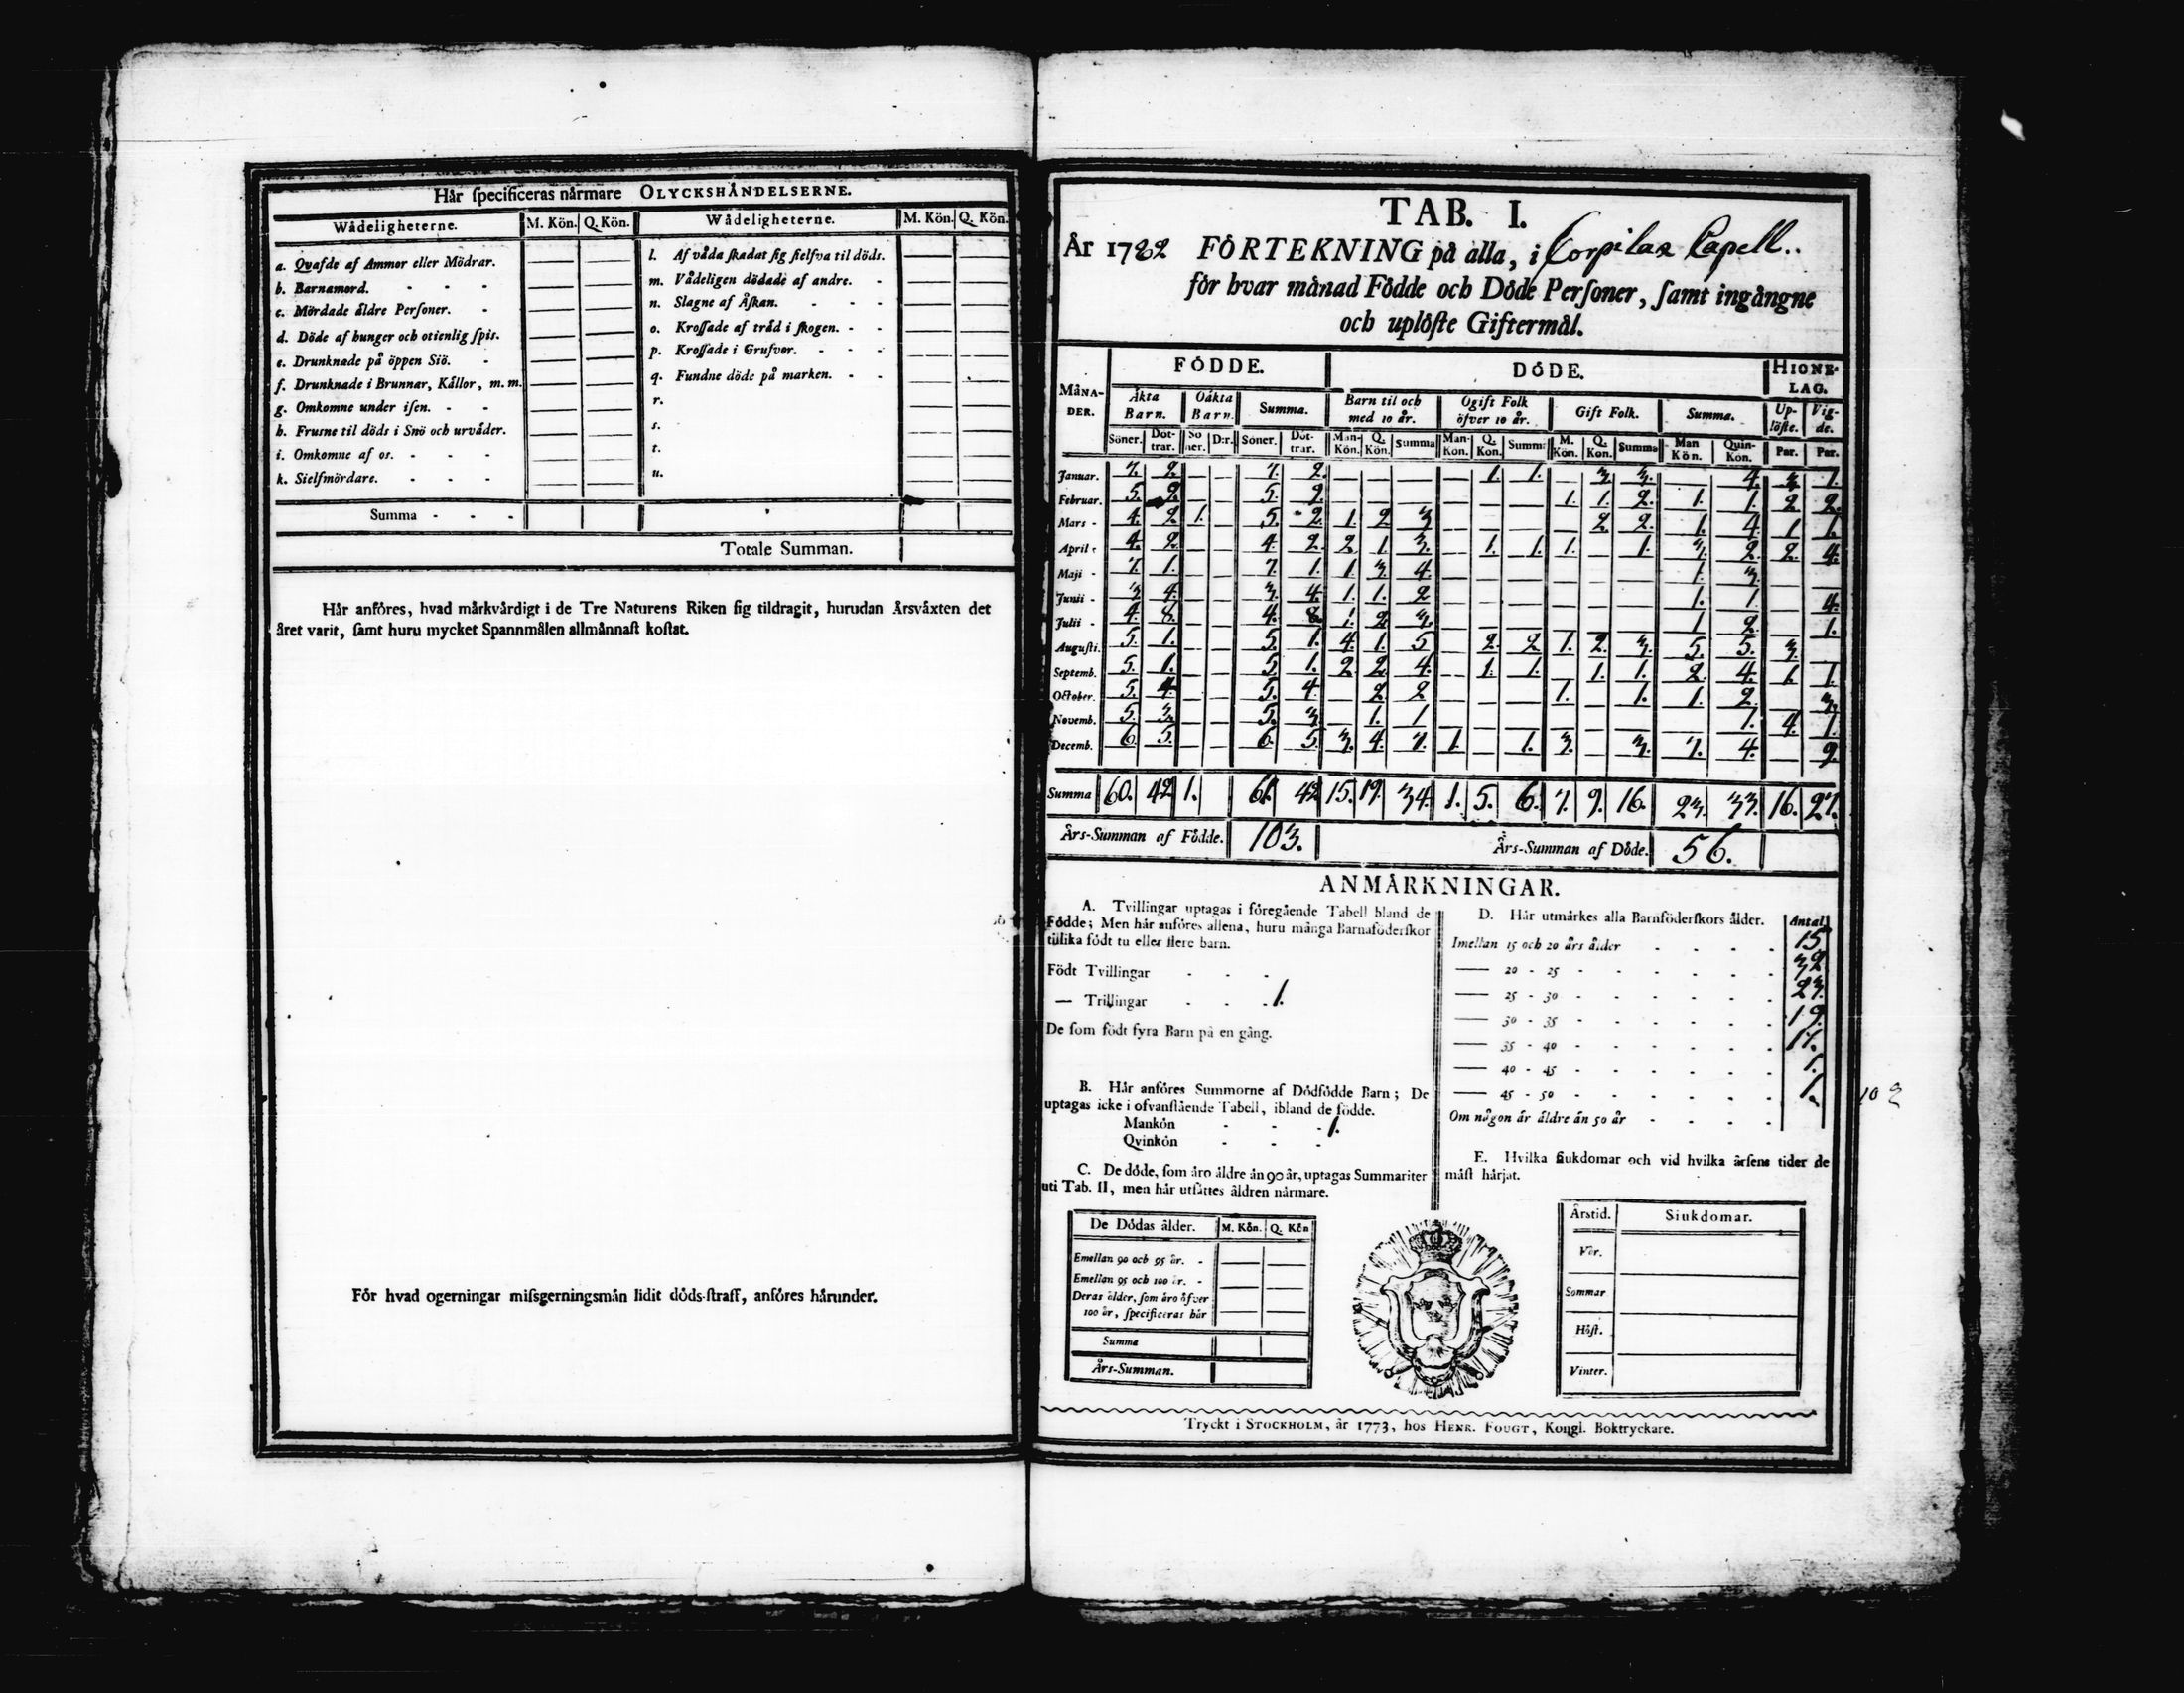 Hår ſpecificeras nårmare OLYCKSHÅNDELSERNE.
Wådeligheterne. M. Kön. Q. Kön. Wådeligheterne. M. Kön. Q. Kön.
a. Qvafde af Ammor eller Mödrar.
b. Barnamord. - - -
c. Mördade åldre Perſoner. -
d. Döde af hunger och otienlig ſpis.
e. Drunknade på öppen Siö. -
f. Drunknade i Brunnar, Kållor, m. m.
g. Omkomne under iſen. - -
h. Fruſne til döds i Snö och urvåder.
i. Omkomne af os. - - -
k. Sielfmördare. - - -
l. Af våda ſkadat ſig ſielfva til döds.
m. Vådeligen dödade af andre. -
n. Slagne af Åſkan. - - -
o. Kroſſade af tråd i ſkogen. - -
p. Kroſſade i Grufvor. - - -
q. Fundne döde på marken. - -
r.
s.
t.
u.
Summa - - -
Totale Summan.
Hår anföres, hvad mårkvårdigt i de Tre Naturens Riken ſig tildragit, hurudan Årsvåxten det
året varit, ſamt huru mycket Spannmålen allmånnaſt koſtat.
För hvad ogerningar miſsgerningsmån lidit döds-ſtraff, anföres hårunder.
TAB. I.
År 1782 FÖRTEKNING på alla, i Corpilax Capell..
för hvar månad Födde och Döde Perſoner, ſamt ingångne
och uplöſte Giftermål.
FÖDDE. DÖDE. HIONE-
LAG.
MÅNA-
DER. Åkta
Barn. Oåkta
Barn. Summa. Barn til och
med 10 år. Ogift Folk
öfver 10 år. Gift Folk. Summa. Up-
löſte. Vig-
de.
Söner. Döt-
trar. Sö
ner. D:r. Söner. Döt-
trar. Man-
Kön. Q.
Kön. Summa Man-
Kön. Q.
Kön. Summa M.
Kön. Q.
Kön. Summa Man
Kön. Quin-
Kön. Par. Par.
Januar. 7. 2. — — 7. 2. — — — — 1. 1. — 3. 3. — 4. 3. 1.
Februar. 5. 9. — — 5. 9. — — — — — — 1. 1. 2. 1. 1. 2. 2.
Mars - 4. 2. 1. — 5. 2. 1. 2. 3. — — — — 2. 2. 1. 4. 1. 1.
April - 4. 2. — — 4. 2. 2. 1. 3. — 1. 1. 1. — 1. 3. 2. 2. 4.
Maji - 7. 1. — — 7. 1. 1. 3. 4. — — — — — — 1. 3. —
Junii - 3. 4. — — 3. 4. 1. 1. 2 — — — — — — 1. 1. — 4.
Julii - 4. 8. — — 4. 8. 1. 2. 3. — — — — — — 1. 2. — 1.
Auguſti. 5. 1. — — 5. 1. 4. 1. 5 — 2. 2 1. 2. 3. 5. 5. 3. —
Septemb. 5. 1. — — 5. 1. 2. 2. 4. — 1. 1. — 1. 1. 2. 4. 1. 1.
October. 5. 4. — — 5. 4. — 2. 2 — — — 1. — 1. 1. 2. — 3.
Novemb. 5. 3. — — 5. 3. — 1. 1 — — — — — — — 1. 4. 1.
Decemb. 6. 5. — — 6. 5. 3. 4. 7. 1. — 1. 3. — 3. 7. 4. — 9.
Summa 60. 42 1. 61. 42 15. 19. 34. 1. 5. 6. 7. 9. 16. 23. 33. 16. 27.
Års-Summan af Födde. 103. Års-Summan af Döde. 56.
ANMÅRKNINGAR.
A. Tvillingar uptagas i föregående Tabell bland de
Födde; Men hår anföres allena, huru många Barnaföderſkor
tillika födt tu eller flere barn.
Födt Tvillingar - - -
— Trillingar - - - 1.
De ſom födt fyra Barn på en gång.
B. Hår anföres Summorne af Dödfödde Barn; De
uptagas icke i ofvanſtående Tabell, ibland de födde.
Mankön - - - 1.
Qvinkön - - -
C. De döde, ſom åro åldre ån 90 år, uptagas Summariter
uti Tab. II, men hår utſåttes åldren nårmare.
De Dödas ålder. M. Kön. Q. Kön
Emellan 90 och 95 år. -
Emellan 95 och 100 år. -
Deras ålder, ſom åro öfver
100 år, ſpecificeras hår
Summa
Års-Summan.
D. Hår utmårkes alla Barnföderſkors ålder. Antal
Imellan 15 och 20 års ålder - - - - 15
— 20 - 25 - - - - - - 32
— 25 - 30 - - - - - - 23.
— 30 - 35 - - - - - - 19.
— 35 - 40 - - - - - - 11.
— 40 - 45 - - - - - - 1.
— 45 - 50 - - - - - - 1.
Om någon år åldre ån 50 år - - - -
102
E. Hvilka ſiukdomar och vid hvilka årſens tider de
måſt hårjat.
Årstid. Siukdomar.
Vår.
Sommar
Höſt.
Vinter.
Tryckt i STOCKHOLM, år 1773, hos HENR. FOUGT, Kongl. Boktryckare.